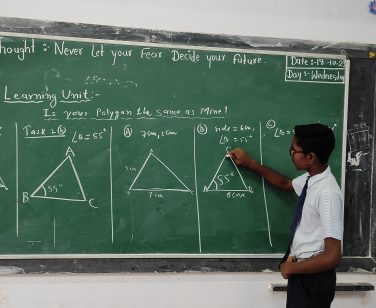 Thought :- Never Let your Fear Decide your Future.
Date :- 18-10-2
Day :- Wednesday
Learning Unit:-
Is your Polygon the same as Mine?
Task 2 (b) ∠B = 55°
A
55°
B C
(A) 7cm, 5cm
5cm
7cm
(B) side = 6cm,
∠B = 55°
55°
A
6cm
(C)
∠B =